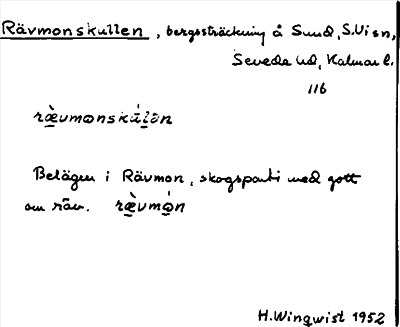 Rävmonskullen, bergssträckning å Sund, S. Vi sn,
Sevede hd, Kalmar l.
116
ræ̀vmonskúlən
Belägen i Rävmon, skogsparti med gott
om räv. ræ̀vmón
H. Wingwist 1952